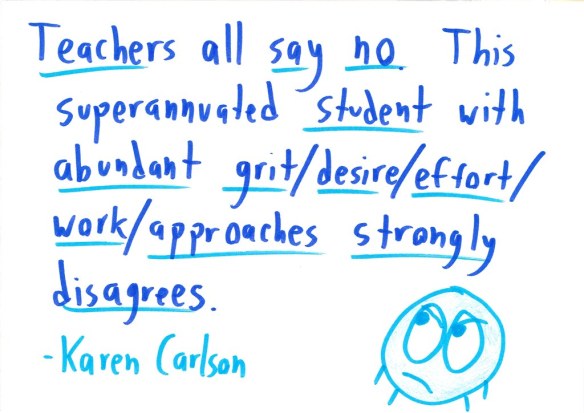 Teachers all say no. This
superannuated student with
abundant grit/desire/effort/
work/approaches strongly
disagrees.
-Karen Carlson